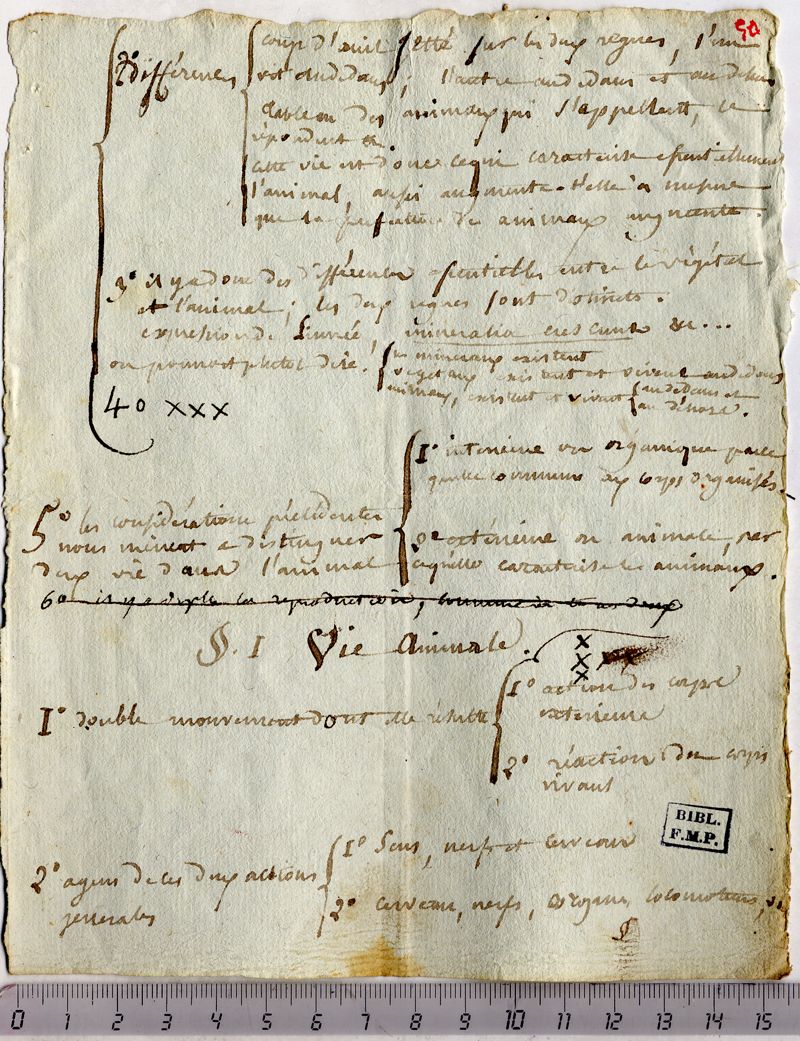 50
2° différences
coup d'oeuil jetté sur les deux regnes, l'un
vit audedans; l'autre audedans et audehors
tableau des animaux qui s'appellent, se
répondent &c
cette vie est donc ce qui caracterise essentiellement
l'animal, aussi augmente-t'elle a mesure
que la perfection des animaux augmente.
3° il y a donc des différences essentielles entre le végétal
et l'animal; les deux regnes sont distincts.
expression de Linnée, mineralia crescunt &c...
on pourroit plutot dire:
les mineraux existent
vegetaux existent et vivent audedans
animaux, existent et vivent
audedans et
au dehors.
40 xxx
5° les considérations précédentes
nous menent a distinguer
deux vies dans l'animal
1° interieure ou organique parce
qu'elle commune aux corps organisés.
2° extérieure ou animale, par
ce qu'elle caracterise les animaux.
6° il y a de plus la reproduction, commune a tous deux
§. I Vie Animale.
x
x x x
x
1° double mouvement dont elle résulte
1° action des corps
exterieurs
2° réaction du corps
vivant
BIBL.
F.M.P.
2° agens de ces deux actions
generales
1° Sens, nerfs et cerveau
2° cerveau, nerfs, organes locomoteurs,
0 1 2 3 4 5 6 7 8 9 10 11 12 13 14 15